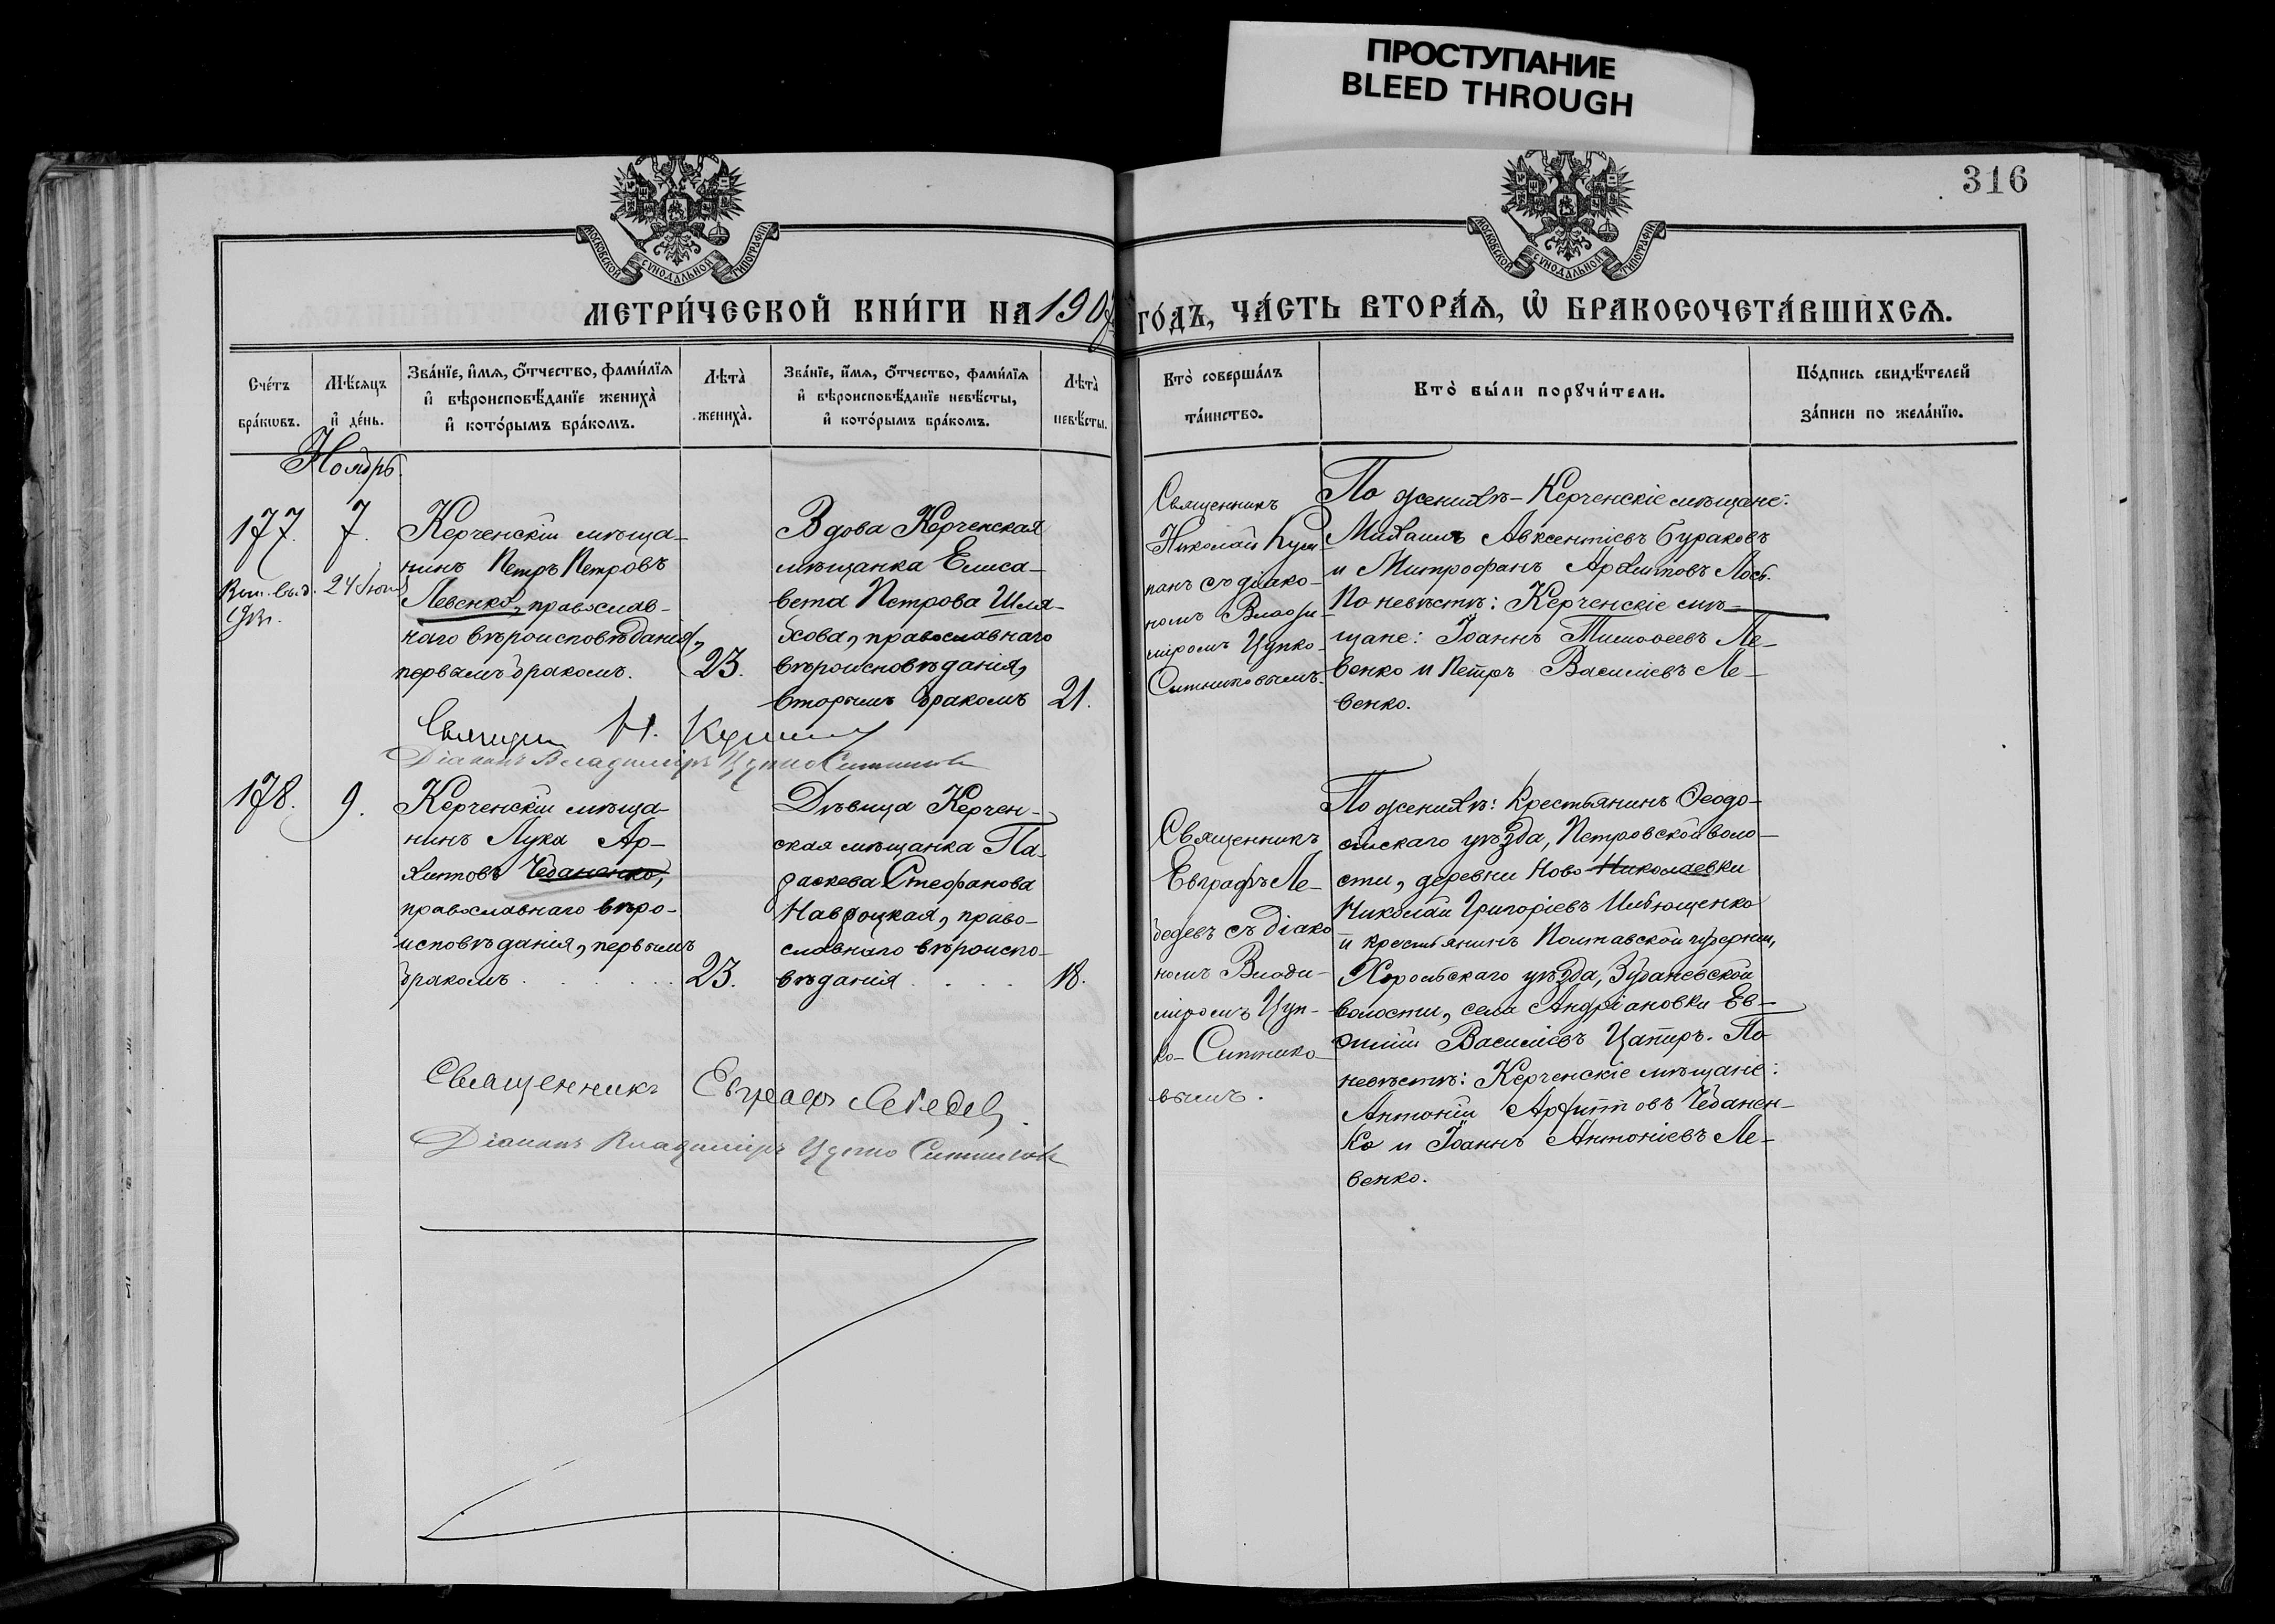 ПРОСТУПАНИЕ
BLEED THROUGH
316
МОСКОВСКОЙ СУНОДАЛЬНОЙ ТИПОГРАФІИ
МОСКОВСКОЙ СУНОДАЛЬНОЙ ТИПОГРАФІИ
МЕТРИ́ЧЕСКОЙ КНИ́ГИ НА 1907
ГО́ДЪ, ЧА́СТЬ ВТОРА́Я, Ѡ БРАКОСОЧЕТА́ВШИХСЯ.
Сче́тъ бра́кѡвъ.
Мѣ́сяцъ и҆ де́нь.
Зва́нїе, и҆́мя, ѻ҆́тчество, фами́лїя
и҆ вѣроисповѣ́данїе жениха̀
и҆ кото́рымъ бра́комъ.
Лѣта̀ жениха̀.
Зва́нїе, и҆́мя, ѻ҆́тчество, фами́лїя
и҆ вѣроисповѣ́данїе невѣ́сты,
и҆ кото́рымъ бра́комъ.
Лѣта̀ невѣ́сты.
Кто̀ соверша́лъ
та́инство.
Кто̀ бы́ли порꙋчи́тели.
По́дпись свидѣ́телей
за́писи по жела́нїю.
Ноябрь.
177.
7.
24 Іюня
Керченскій мѣща-
нинъ Петръ Петровъ
Левенко, православ-
наго вѣроисповѣданія,
первымъ бракомъ.
23.
Вдова Керченская
мѣщанка Елиса-
вета Петрова Шля-
хова, православнаго
вѣроисповѣданія,
вторымъ бракомъ
21.
Священникъ
Николай Куш-
панъ съ діако-
номъ Влади-
міромъ Цупко-
Ситниковымъ.
По женихѣ - Керченскіе мѣщане:
Михаилъ Авксентіевъ Бураковъ
и Митрофанъ Архиповъ Лось.
По невѣстѣ: Керченскіе мѣ-
щане: Іоаннъ Тимофеевъ Ле-
венко и Петръ Василіевъ Ле-
венко.
Священ Н.
Діаконъ Владиміръ Цупко Ситников
178.
9.
Керченскій мѣща-
нинъ Лука Ар-
хиповъ Чебаненко,
православнаго вѣро-
исповѣданія, первымъ
бракомъ
23.
Дѣвица Керчен-
ская мѣщанка Па-
раскева Стефанова
Навроцкая, право-
славнаго вѣроиспо-
вѣданія
18.
Священникъ
Евграфъ Ле-
бедевъ съ діако
номъ Влади-
міромъ Цуп-
ко-Ситнико-
вымъ.
По женихѣ: Крестьянинъ Ѳеодо-
сійскаго уѣзда, Петровской воло-
сти, деревни Ново-Николаевки
Николай Григоріевъ
и крестьянинъ Полтавской губерніи,
Хорольскаго уѣзда,
волости, села Андріановки Ев-
фимій Василіевъ Цапиръ. По
невѣстѣ: Керченскіе мѣщане:
Антоній Архиповъ Чебанен-
ко и Іоаннъ Антоніевъ Ле-
венко.
Священникъ Евграфъ Лебедев.
Діаконъ Владиміръ Цупко Ситников